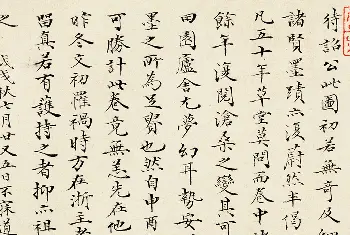 待詔公此圖初若無奇及細
諸賢墨蹟亦復蔚然半偈
凡五十年草堂莫問而卷中
餘年渡閱滄桑之變其可
田園廬舍尤夢幻耳勢安
墨之所為足賢也然自申酉
可勝計此卷竟無恙先在他
昨冬文初罹禍時方在浙主者
留真若有護持之者抑亦祖
之 戊戌秋七月廿又五日不寐道